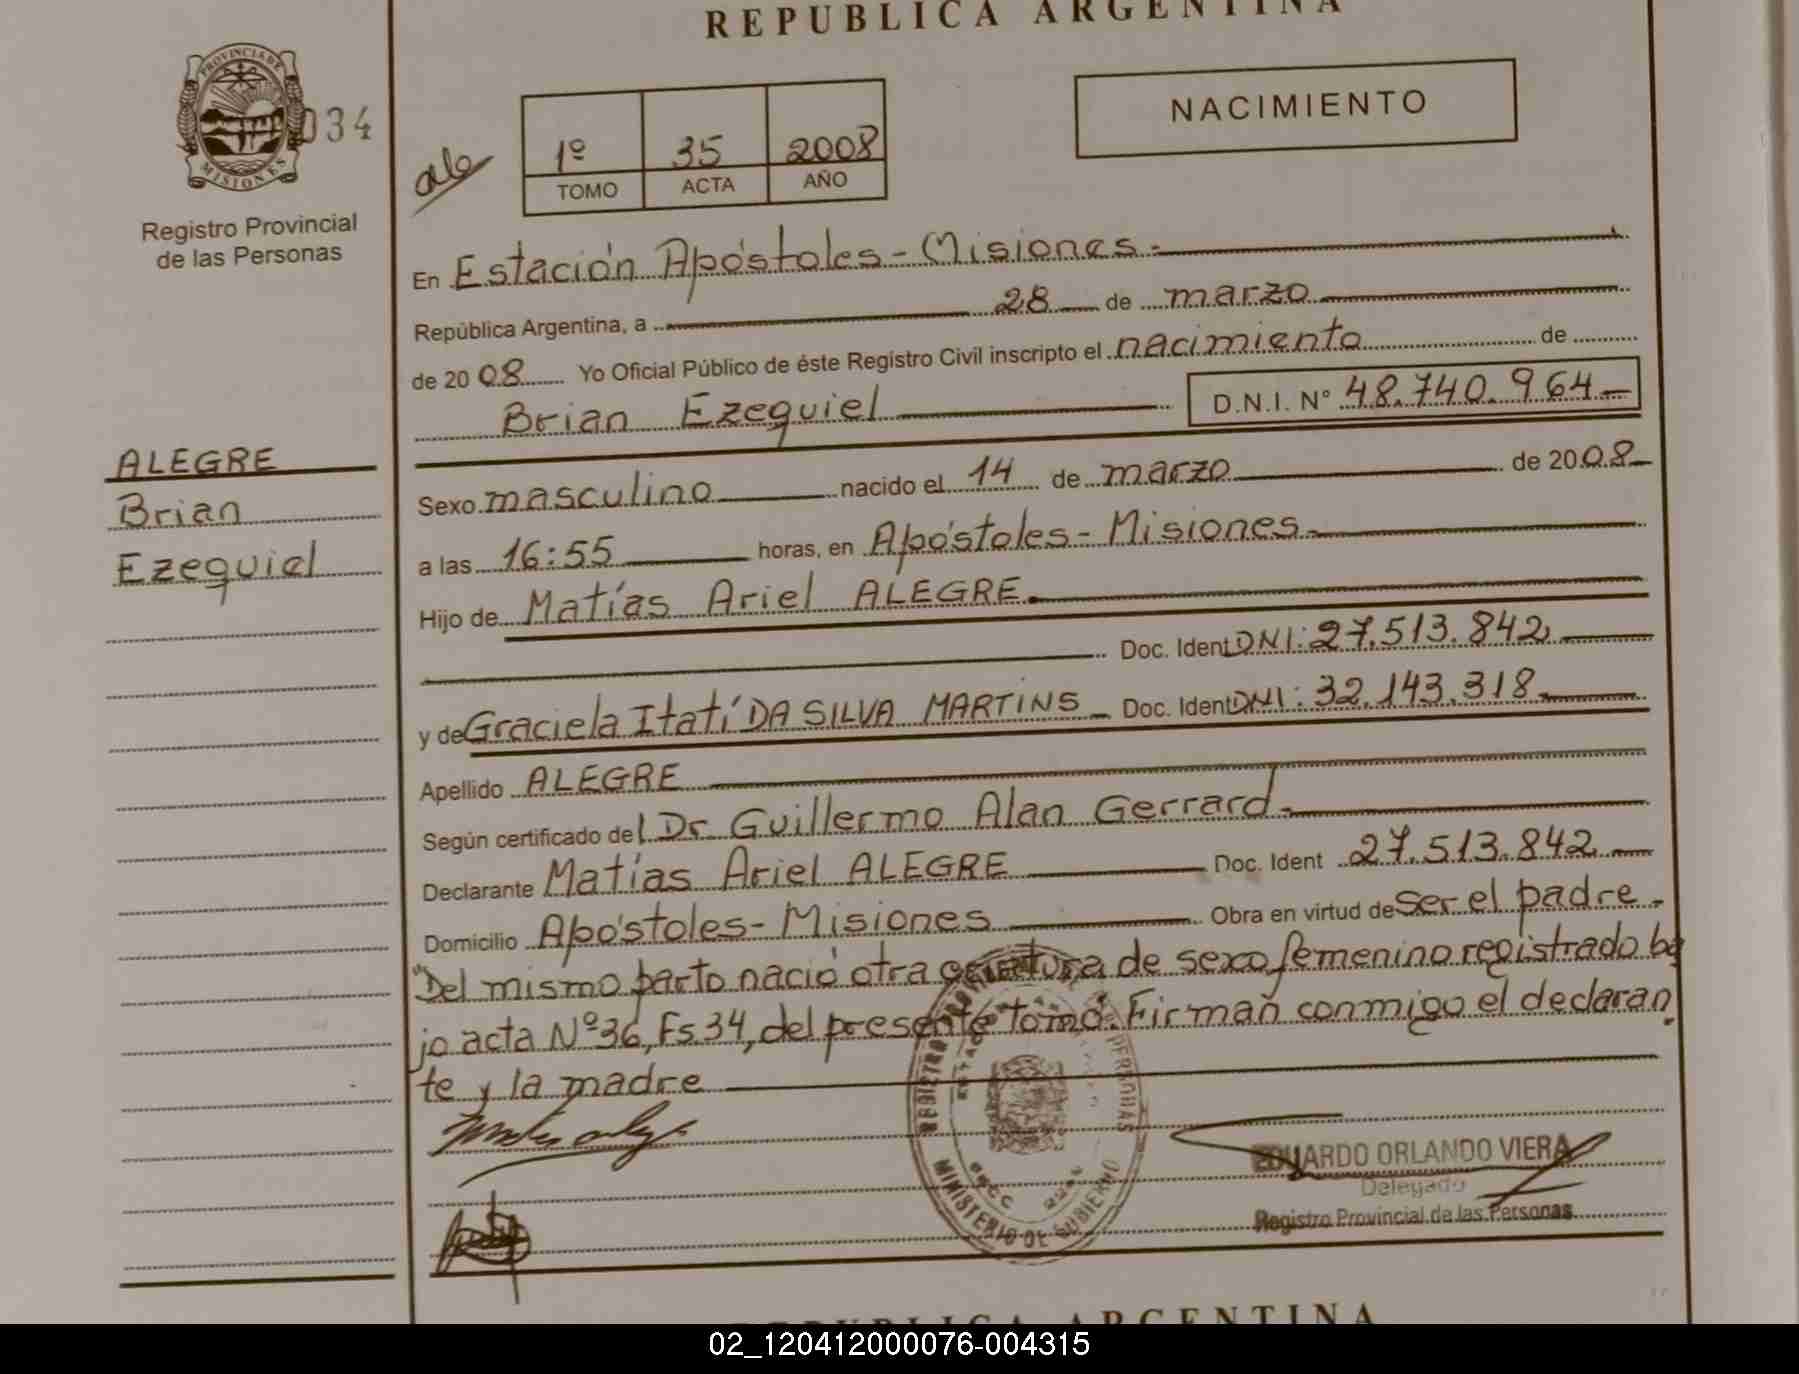 REPUBLICA ARGENTINA
PROVINCIA DE
MISIONES
034
Registro Provincial
de las Personas
1º 35 2008
TOMO ACTA AÑO
NACIMIENTO
En Estación Apóstoles - Misiones.
República Argentina, a 28 de marzo
de 2008 Yo Oficial Público de éste Registro Civil inscripto el nacimiento de
Brian Ezequiel D.N.I. Nº 48.740.964
ALEGRE
Brian
Ezequiel
Sexo masculino nacido el 14 de marzo de 2008
a las 16:55 horas, en Apóstoles - Misiones
Hijo de Matías Ariel ALEGRE
Doc. Ident DNI: 27.513.842
y de Graciela Itatí DA SILVA MARTINS Doc. Ident DNI: 32.143.318
Apellido ALEGRE
Según certificado del Dr. Guillermo Alan Gerrard
Declarante Matías Ariel ALEGRE Doc. Ident 27.513.842
Domicilio Apóstoles - Misiones Obra en virtud de ser el padre.
"Del mismo parto nació otra criatura de sexo femenino registrado ba
jo acta Nº 36, Fs. 34, del presente tomo". Firman conmigo el declaran
te y la madre
MINISTERIO DE GOBIERNO
EDUARDO ORLANDO VIERA
Delegado
Registro Provincial de las Personas
REPUBLICA ARGENTINA
02_120412000076-004315